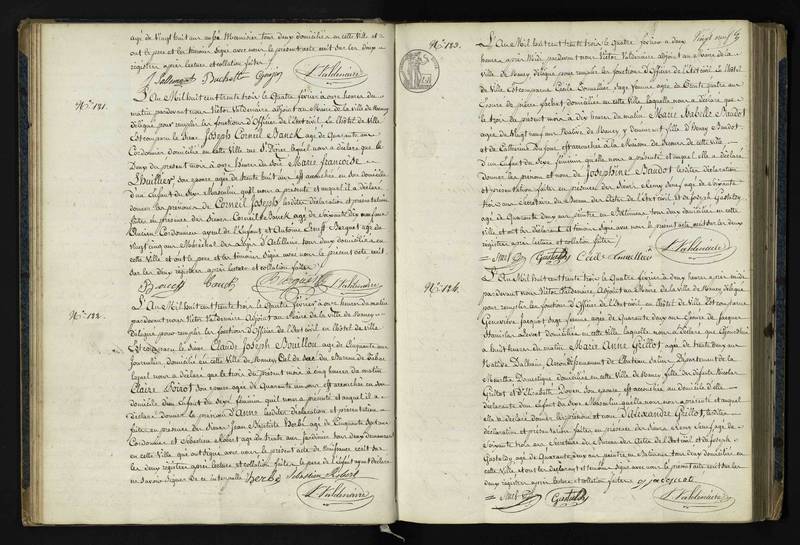 agé de Vingt huit ans aussi Menuisier tous deux domiciliés en cette Ville et
ont le pere et les temoins signé avec nous le present acte ecrit sur les deux
registres après lecture et collation faites
N° 181.
L'An Mil huit cent trente trois le Quatre février à onze heures du
matin pardevant nous Victor Valdenaire adjoint au Maire de la ville de Nancy
délégué pour remplir les fonctions d'Officier de l'Etat civil en l'hôtel de Ville
Est comparu le Sieur Joseph Corneil Banck agé de Quarante ans
Cordonnier domicilié en cette Ville rue St Dizier lequel nous a déclaré que le
Deux du present mois à onze heures du soir Marie françoise
Lhuillier son epouse agée de trente huit ans est accouchée en son domicile
d'un Enfant du Sexe Masculin qu'il nous a présenté et auquel il a déclaré
donner les prénoms de Corneil Joseph lesdites déclaration et présentation
faites en présence des Sieurs Corneil Banck agé de soixante dix ans
Ancien Cordonnier ayeul de l'Enfant et Antoine
vingt cinq ans Maréchal des Logis d'Artillerie tous deux domiciliés en
cette Ville et ont le pere et les temoins signé avec nous le présent acte ecrit
sur les deux registres après lecture et collation faites
N° 182.
L'An Mil huit cent trente trois le Quatre février à onze heures du matin
pardevant nous Victor Valdenaire Adjoint au Maire de la Ville de Nancy
délégué pour remplir les fonctions d'Officier de l'Etat civil en l'hôtel de Ville
Est comparu le Sieur Claude Joseph Bouillon agé de Cinquante ans
Journalier domicilié en cette Ville de Nancy
lequel nous a déclaré que le trois du présent mois à cinq heures du matin
Claire Poirot son epouse agée de Quarante un ans est accouchée en son
domicile d'un Enfant du Sexe féminin qu'il nous a présenté et auquel il a
déclaré donner le prénom d'Anne lesdites déclaration et présentation
faites en présence des Sieurs Jean Baptiste Herbé agé de Cinquante
Cordonnier et Sébastien Robert agé de trente ans jardinier tous deux demeurant
en cette Ville qui ont signé avec nous le present acte de Naissance ecrit sur
les deux registres après lecture et collation faites le pere de l'enfant ayant déclaré
ne savoir signer de ce interpellé Herbé Sébastien Robert
Valdenaire
Vingt neuf
N° 183.
L'An Mil huit cent trente trois le Quatre février à deux
heures après Midi pardevant nous Victor Valdenaire adjoint au Maire de la
Ville de Nancy délégué pour remplir les fonctions d'Officier de l'Etat civil En l'hôtel
de Ville Est comparue Cécile
domiciliée en cette Ville laquelle nous a déclaré que
le trois du présent mois à dix heures du matin Marie Isabelle Baudot
agée de Vingt neuf ans Native de Nancy y demeurant fille d'Henry Baudot
et de Catherine est accouchée en la Maison de Secours de cette ville
d'un Enfant du Sexe féminin quelle nous a présenté et auquel elle a déclaré
donner les prénom et nom de Josephine Baudot lesdites déclaration
et présentation faites en présence des Sieurs Remy agé de soixante
trois ans Secrétaire du Bureau des Actes de l'Etat civil et de Joseph Gastaldy
agé de Quarante deux ans peintre en Batimens tous deux domiciliés en cette
ville et ont les déclarant et temoins signé avec nous le present acte ecrit sur les deux
registres après lecture et collation faites
Gastaldy Valdenaire
N° 184.
L'An Mil huit cent trente trois le Quatre février à deux heures après midi
pardevant nous Victor Valdenaire Adjoint au Maire de la Ville de Nancy délégué
pour remplir les fonctions d'Officier de l'Etat civil en l'hôtel de Ville Est comparue
Geneviève Jacquot Sage femme agée de Quarante deux ans Epouse de Jacques
Stanislas domiciliée en cette Ville laquelle nous a déclaré que
à huit heures du matin Marie Anne Grillot agée de trente deux ans
Native Arrondissement de Chateau Salins Département de la
Meurthe Domestique domiciliée en cette Ville de Nancy fille du défunt Nicolas
Grillot et d'Elizabeth Doyen son epouse est accouchée au domicile d'elle
déclarante d'un Enfant du Sexe Masculin quelle nous a présenté et auquel
elle a déclaré donner les prénom et nom d'Alexandre Grillot, lesdites
déclaration et présentation faites en présence des Sieurs Remy agé de
Soixante trois ans Secrétaire du Bureau des Actes de l'Etat civil et de Joseph
Gastaldy agé de Quarante deux ans peintre en Batimens tous deux domiciliés en
cette Ville et ont les déclarant et temoins signé avec nous le present acte ecrit sur les
deux registres après lecture et collation faites g jacquot
Gastaldy Valdenaire